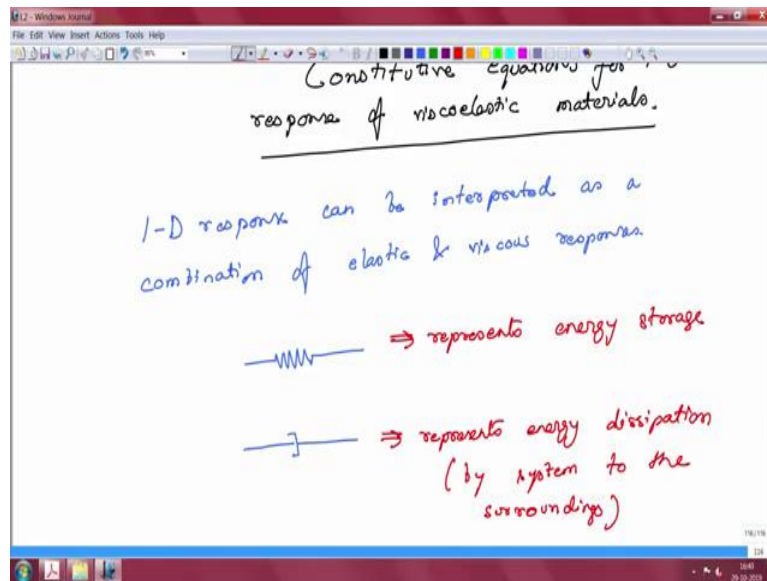 L2 - Windows Journal
File Edit View Insert Actions Tools Help
Constitutive Equations for
response of viscoelastic materials.
1-D response can be interpreted as a
combination of elastic & viscous responses.
⇒ represents energy storage
⇒ represents energy dissipation
(by system to the
surroundings)
116/116
116
16:40
29-10-2019